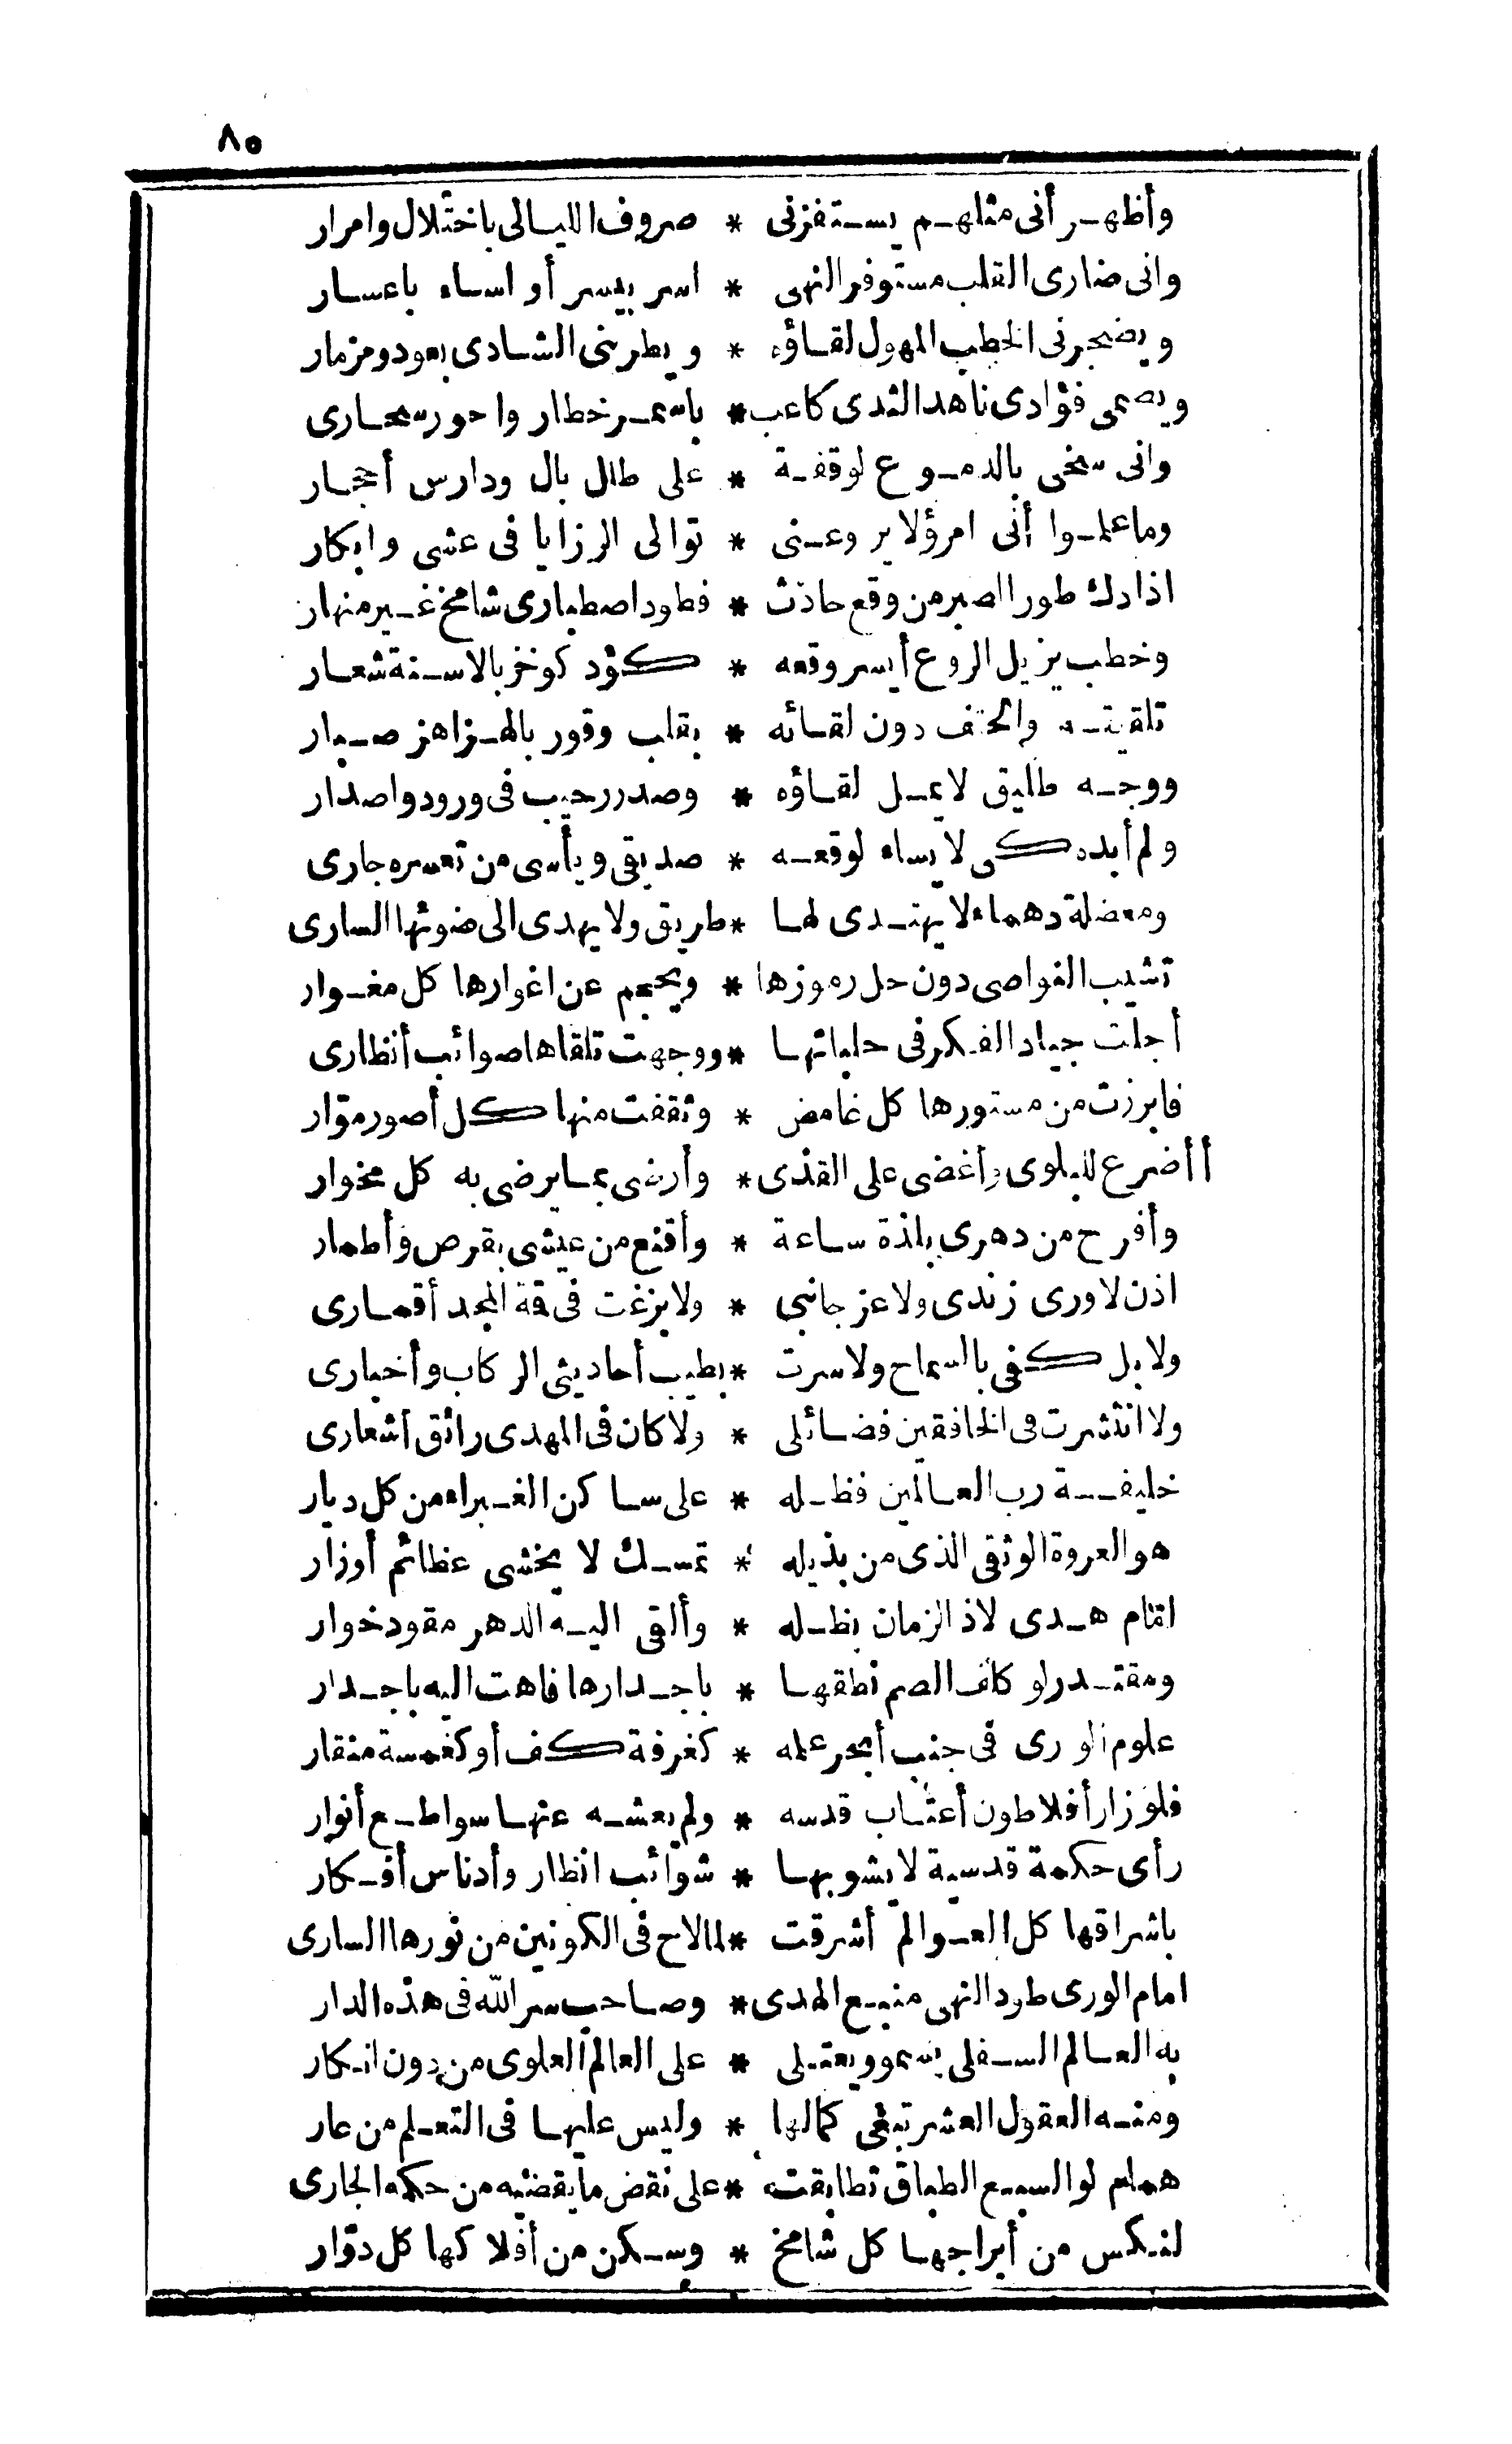 ٨٥
وأظهر أنى مثلهم يستفزنى * صروف الليالى باختلال وامرار
وانى ضارى القلب مستوفر النهى * اسر بيسر أو اساء باعسار
ويضجرنى الخطب المهول لقاؤه * ويطربنى الشادى بعود ومزمار
ويصمى فؤادى ناهد الثدى كاعب * باسمر خطار واحور سحارى
وانى سخى بالدموع لوقفة * على طلل بال ودارس أحجار
وما علموا أنى امرؤ لا يروعنى * توالى الرزايا فى عشى وابكار
اذا دك طور الصبر من وقع حادث * فطود اصطبارى شامخ غير منهار
وخطب يزيل الروع أيسر وقعه * كؤد كوخز بالاسنة شعار
تلقيته والحتف دون لقائه * بقلب وقور بالهزاهز صبار
ووجه طليق لا يمل لقاؤه * وصدر رحيب فى ورود واصدار
ولم أبده كى لا يساء لوقعه * صديقى ويأسى من تعسره جارى
ومعضلة دهماء لا يهتدى لها * طريق ولا يهدى الى ضوئها السارى
تشيب النواصى دون حل رموزها * ويحجم عن اغوارها كل مغوار
أجلت جياد الفكر فى حلباتها * ووجهت تلقاها صوائب أنظارى
فابرزت من مستورها كل غامض * وثقفت منها كل أصور موّار
أأضرع للبلوى وأغضى على القذى * وأرضى بما يرضى به كل مخوار
وأفرح من دهرى بلذة ساعة * وأقنع من عيشى بقرص وأطمار
اذن لا ورى زندى ولا عز جانبى * ولا بزغت فى قمة المجد أقمارى
ولا بل كفى بالسماح ولا سرت * بطيب أحاديثى الركاب وأخبارى
ولا انتشرت فى الخافقين فضائلى * ولا كان فى المهدى رائق أشعارى
خليفة رب العالمين فظله * على ساكن الغبراء من كل ديار
هو العروة الوثقى الذى من بذيله * تمسك لا يخشى عظائم أوزار
امام هدى لاذ الزمان بظله * وألقى اليه الدهر مقود خوار
ومقتدر لو كلف الصم نطقها * باجدارها فاهت اليه باجدار
علوم الورى فى جنب أبحر علمه * كغرفة كف أو كغمسة منقار
فلو زار أفلاطون أعتاب قدسه * ولم يعشه عنها سواطع أنوار
رأى حكمة قدسية لا يشوبها * شوائب انظار وأدناس أفكار
باشراقها كل العوالم أشرقت * لما لاح فى الكونين من نورها السارى
امام الورى طود النهى منبع الهدى * وصاحب سر الله فى هذه الدار
به العالم السفلى يسمو ويعتلى * على العالم العلوى من دون انكار
ومنه العقول العشر تبغى كمالها * وليس عليها فى التعلم من عار
همام لو السبع الطباق تطابقت * على نقض ما يقضيه من حكمه الجارى
لنكس من أبراجها كل شامخ * وسكن من أفلاكها كل دوّار